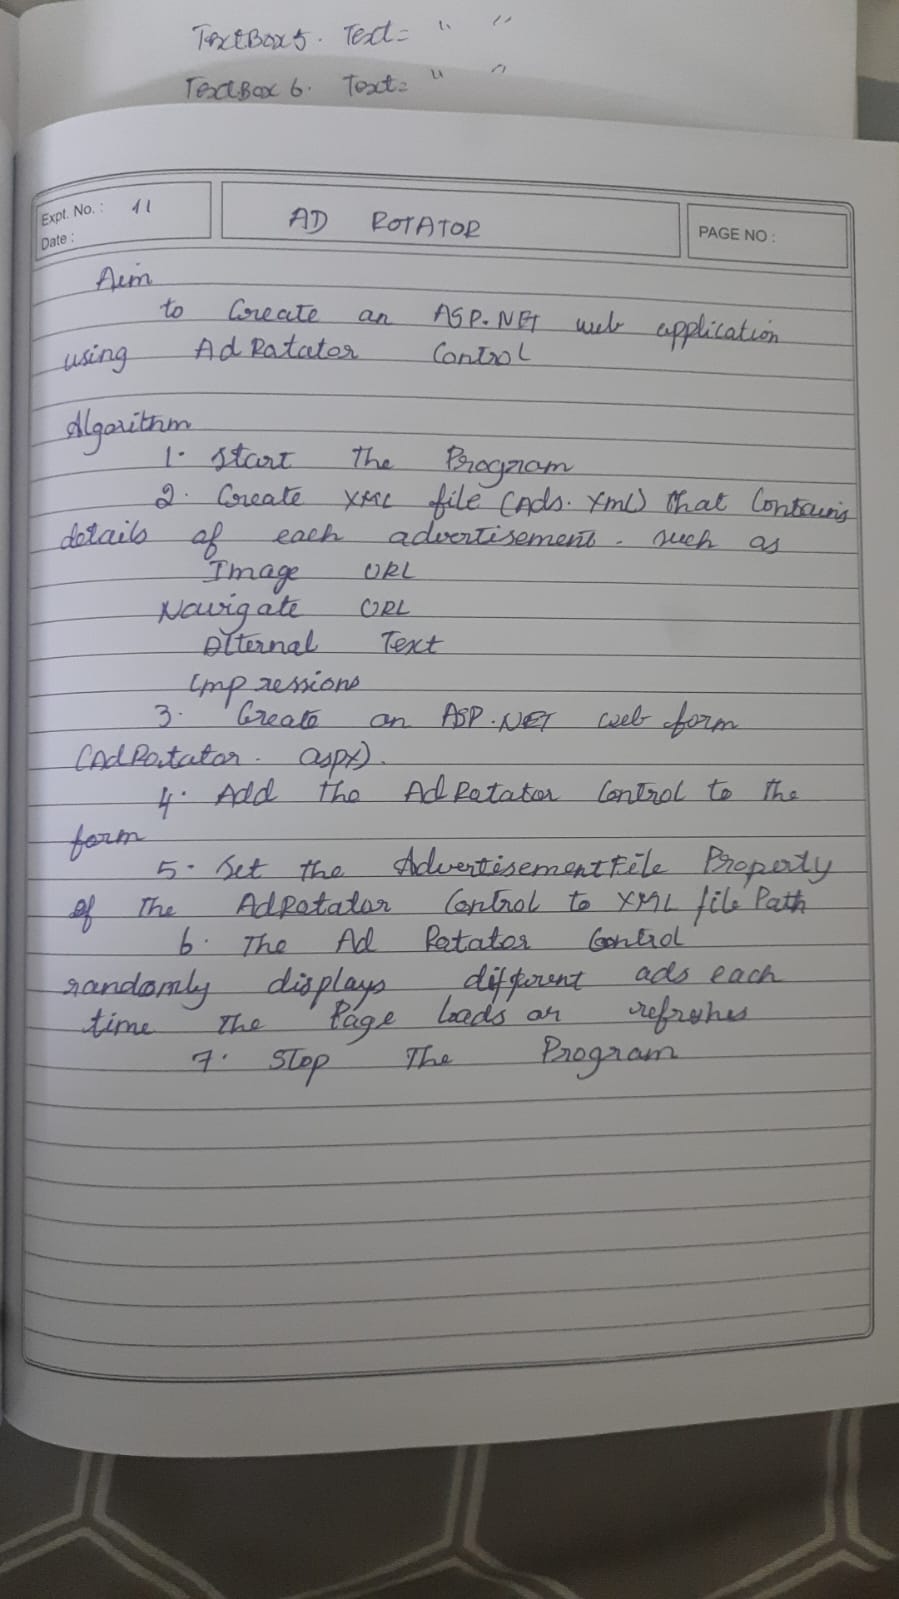 TextBox5. Text= " "
TextBox 6. Text= " "
Expt. No. : 11
Date :
AD ROTATOR
PAGE NO :
Aim
to Create an ASP.NET web application
using Ad Ratator Control
Algorithm
1. Start the Program
2. Create XML file (Ads. Xml) that Contains
details of each advertisement. such as
Image URL
Navigate URL
Alternal Text
Impressions
3. Create an ASP.NET web form
(AdRotator. aspx).
4. Add the AdRotator Control to the
form
5. Set the AdvertisementFile Property
of The AdRotator Control to XML file Path
6. The Ad Rotator Control
randomly displays different ads each
time The Page loads or refreshes
7. Stop The Program